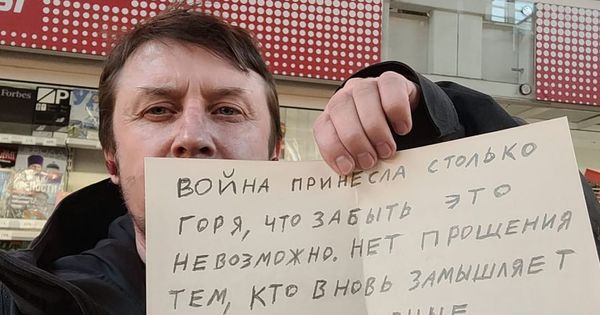 Forbes
ВОЙНА ПРИНЕСЛА СТОЛЬКО
ГОРЯ, ЧТО ЗАБЫТЬ ЭТО
НЕВОЗМОЖНО. НЕТ ПРОЩЕНИЯ
ТЕМ, КТО ВНОВЬ ЗАМЫШЛЯЕТ